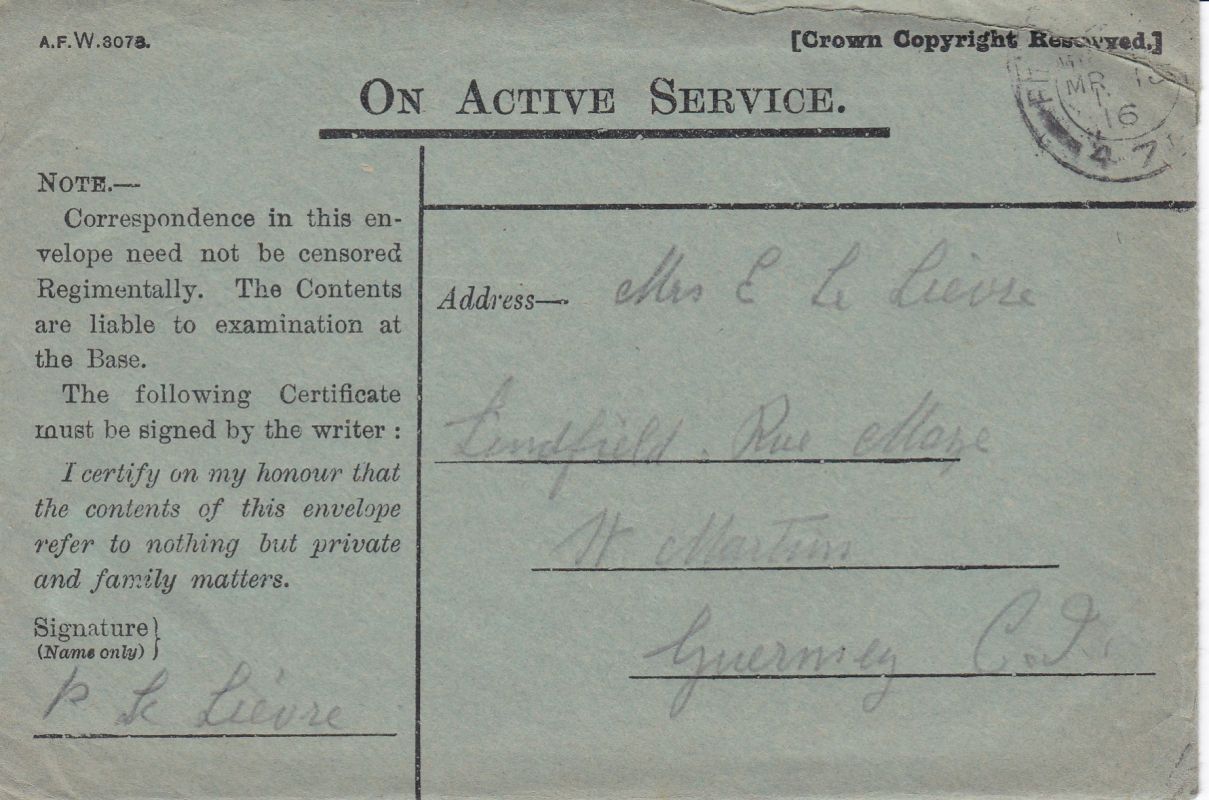 A.F.W.3078.
[Crown Copyright Reserved.]
ON ACTIVE SERVICE.
MR 13
16
47
NOTE.—
Correspondence in this en-
velope need not be censored
Regimentally. The Contents
are liable to examination at
the Base.
The following Certificate
must be signed by the writer :
I certify on my honour that
the contents of this envelope
refer to nothing but private
and family matters.
Signature
(Name only)
P Le Lièvre
Address—
Mrs E Le Lièvre
Lindfield. Rue Maze
St Martins
Guernsey C.I.